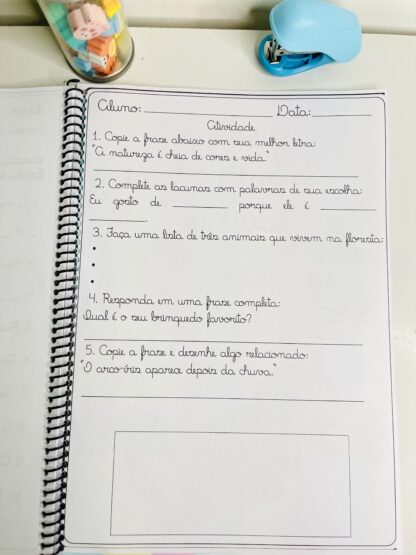 Aluno: ____________________ Data: __________
Atividade
1. Copie a frase abaixo com sua melhor letra:
"A natureza é cheia de cores e vida."
2. Complete as lacunas com palavras de sua escolha:
Eu gosto de __________ porque ele é __________
__________.
3. Faça uma lista de três animais que vivem na floresta:
•
•
•
4. Responda em uma frase completa:
Qual é o seu brinquedo favorito?
5. Copie a frase e desenhe algo relacionado:
"O arco-íris aparece depois da chuva."